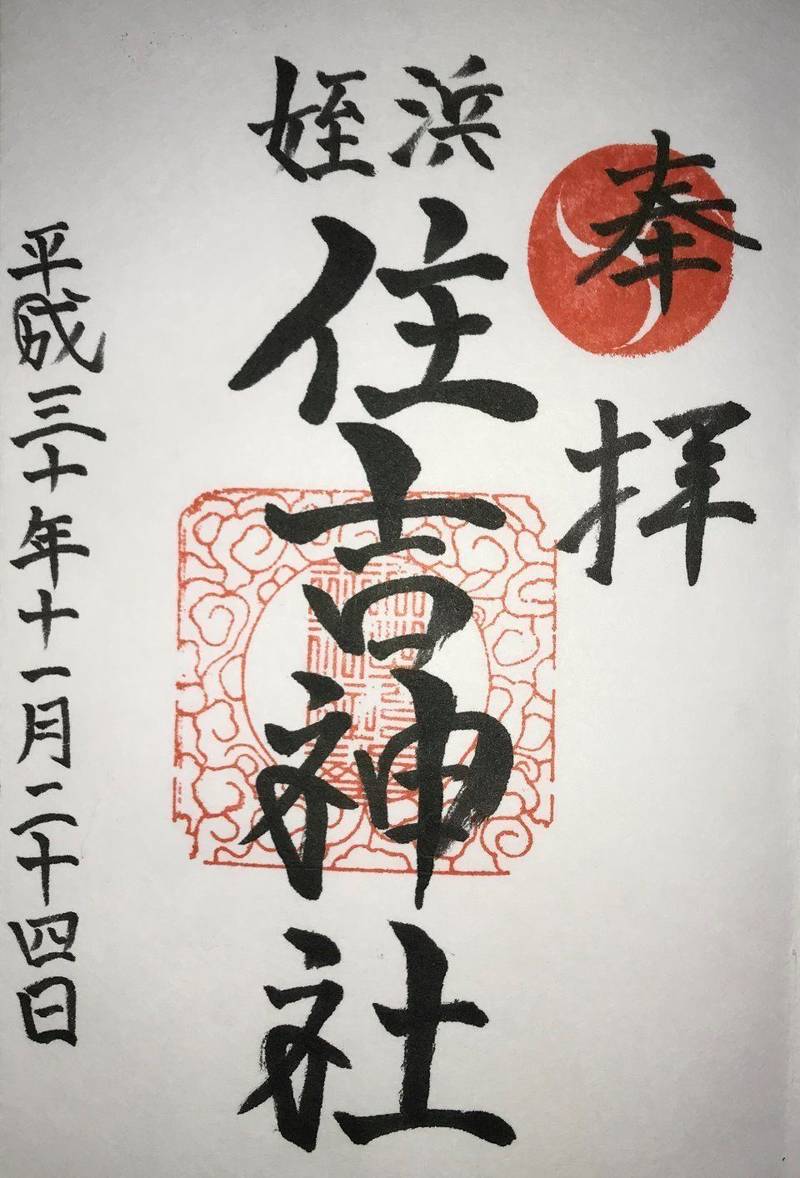 奉拝
姪浜
住吉神社
平成三十年十一月二十四日